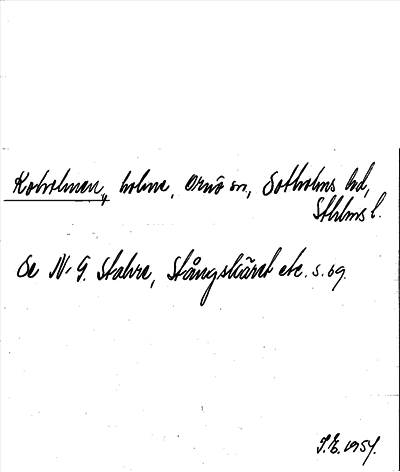 Koholmen, holme, Ornö sn, Sotholms hd,
Sthlms l.
Se N. G. Stahre, Stångskäret etc. s. 69.
S.E. 1954.